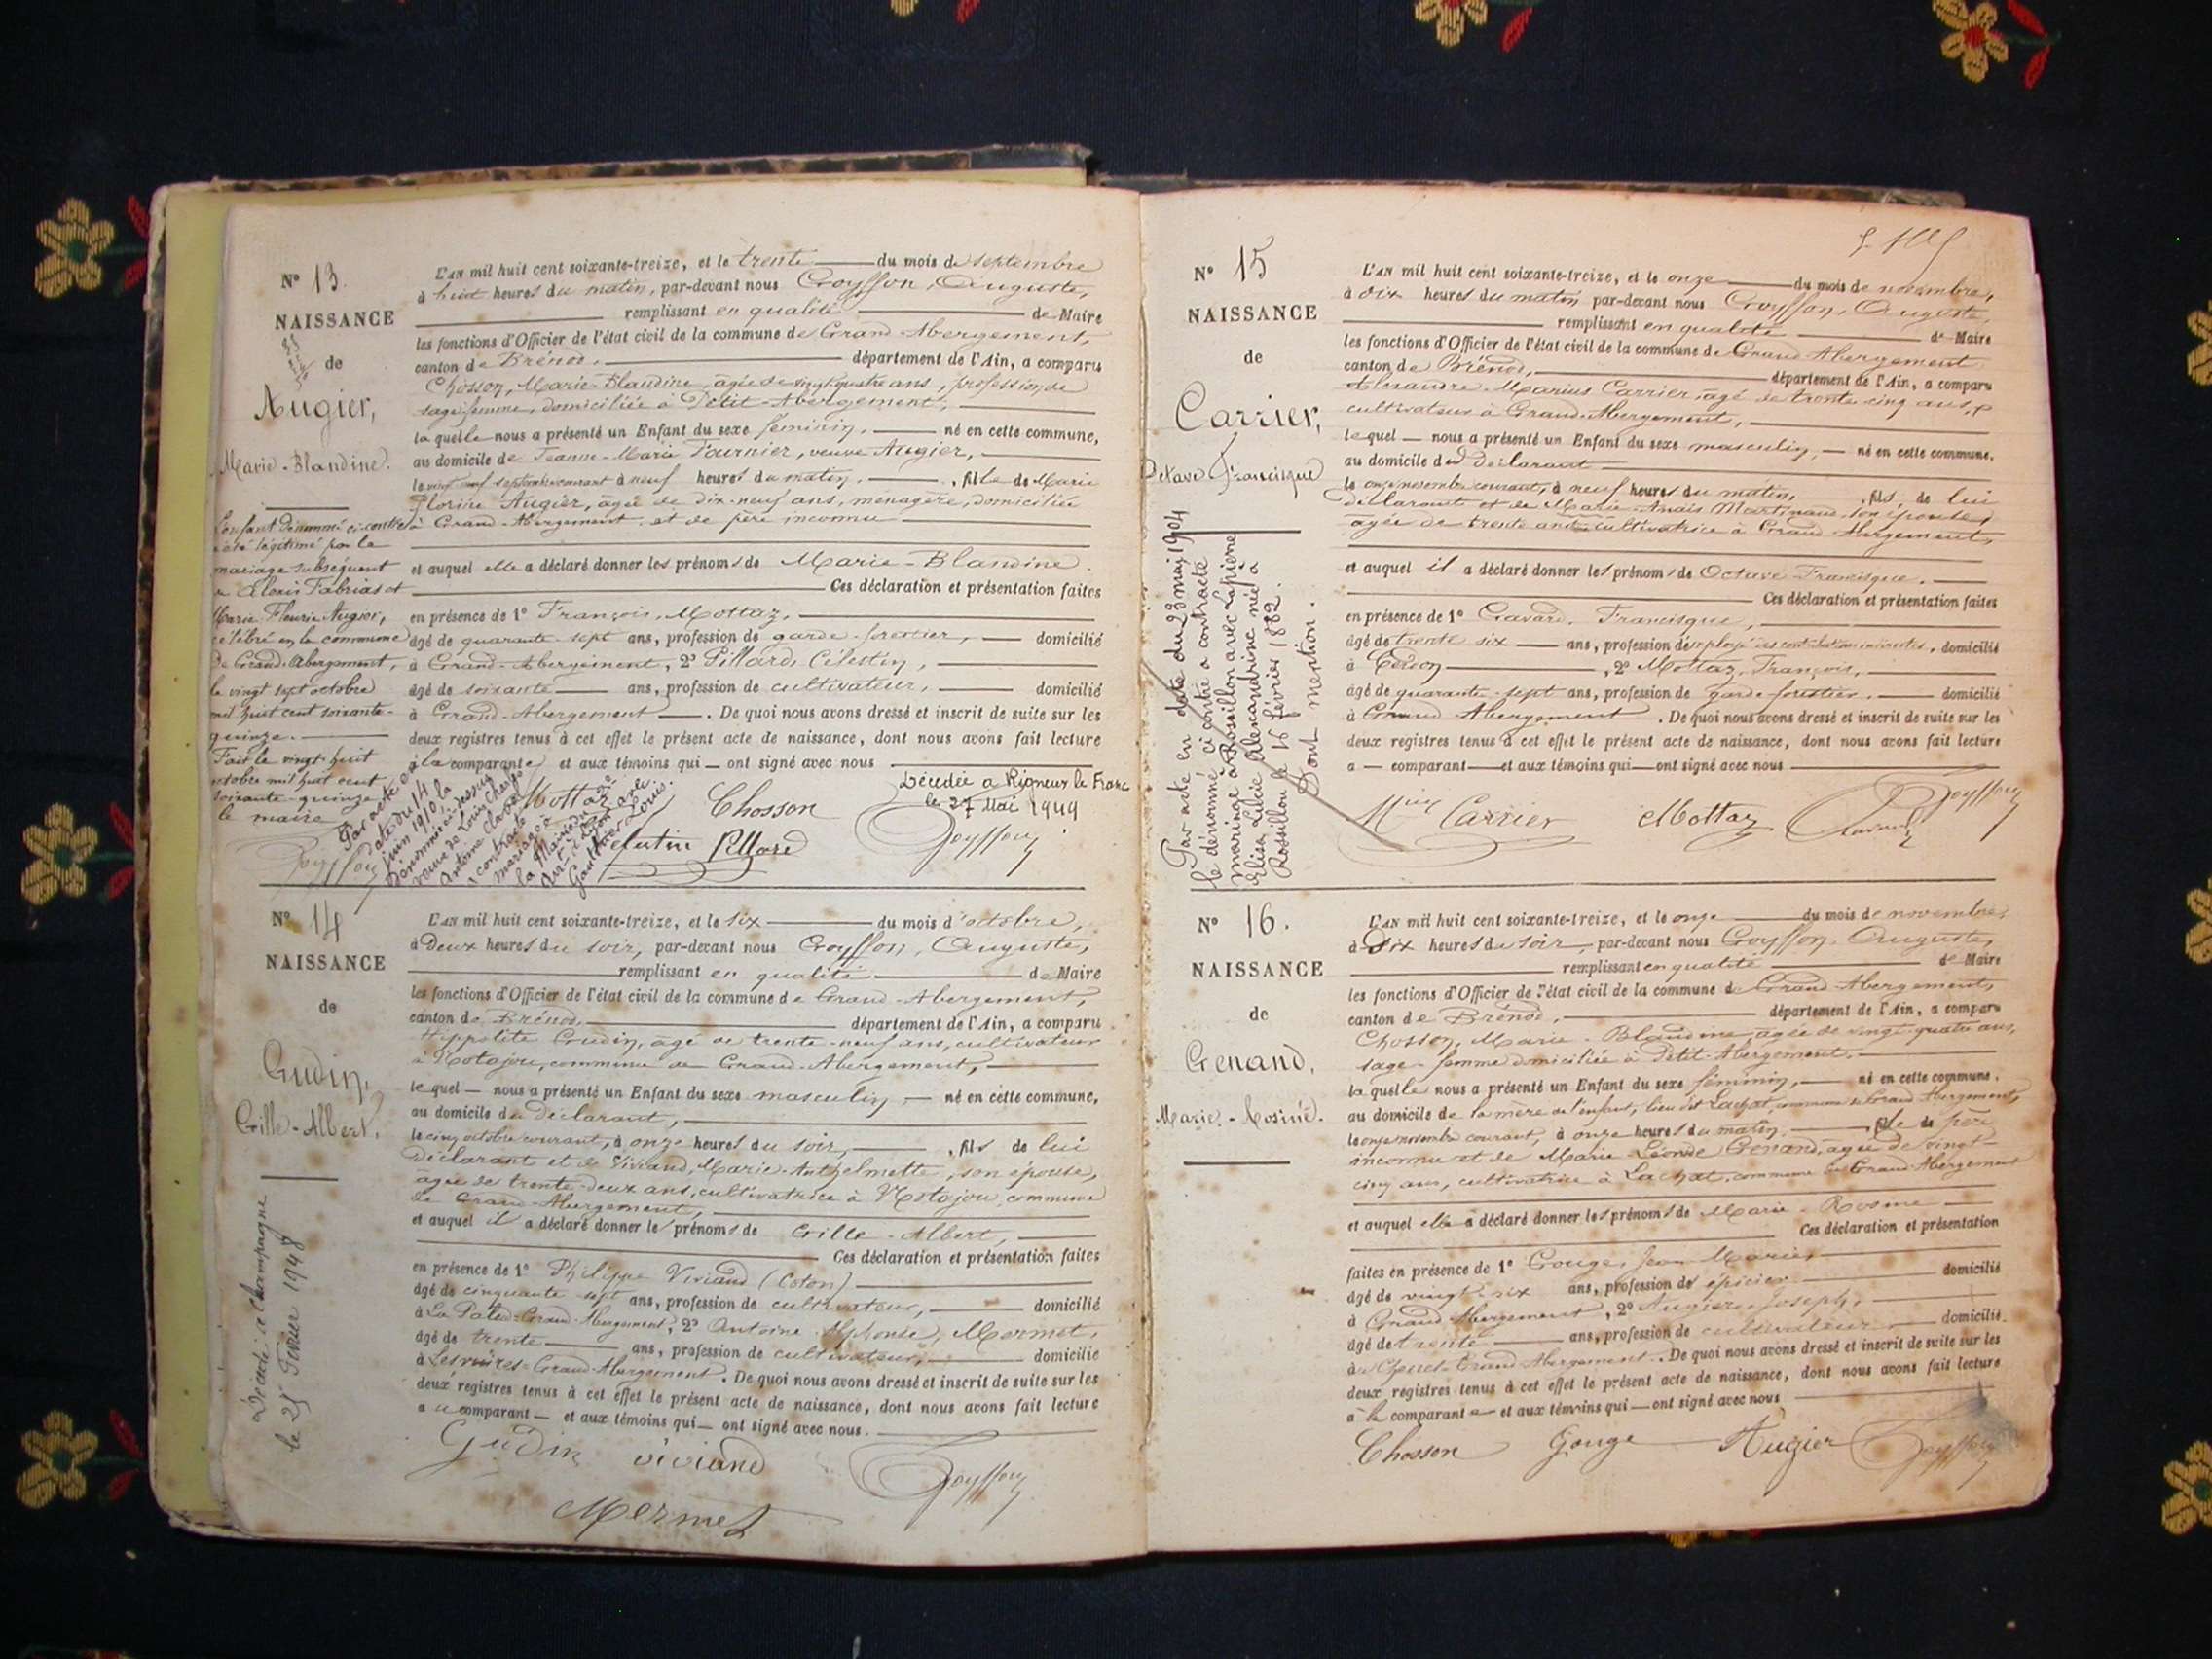 N° 13.
NAISSANCE
de
Augier,
Marie-Blandine.
L'enfant dénommé ci-contre
a été légitimé par le
mariage subséquent
Alexis Fabrias et
Marie Fleurie Augier,
célébré en la commune
de Grand-Abergement,
le vingt sept octobre
mil huit cent soixante-
quinze.
Fait le vingt-huit
octobre mil huit cent
soixante-quinze
le maire
L'AN mil huit cent soixante-treize, et le trente du mois de septembre
à huit heures du matin, par-devant nous Croysson, Auguste,
remplissant en qualité de Maire
les fonctions d'Officier de l'état civil de la commune de Grand-Abergement,
canton de Brénod, département de l'Ain, a comparu
Chosson, Marie-Blandine, âgée de vingt quatre ans, profession de
sage-femme, domiciliée à Petit-Abergement,
laquelle nous a présenté un Enfant du sexe féminin, né en cette commune,
au domicile de Jeanne-Marie Fournier, veuve Augier,
le septembre courant à neuf heures du matin, fille de Marie
Florine Augier, âgée de dix-neuf ans, ménagère, domiciliée
à Grand-Abergement et de père inconnu
et auquel elle a déclaré donner les prénoms de Marie-Blandine.
Ces déclaration et présentation faites
en présence de 1° François, Mottaz,
âgé de quarante-sept ans, profession de garde-forestier, domicilié
à Grand-Abergement, 2° Pillard, Célestin,
âgé de soixante ans, profession de cultivateur, domicilié
à Grand-Abergement. De quoi nous avons dressé et inscrit de suite sur les
deux registres tenus à cet effet le présent acte de naissance, dont nous avons fait lecture
à la comparante et aux témoins qui ont signé avec nous
Décédée a Rigneux le Franc
le 27 Mai 1949
Mottaz Chosson
Pillard
Par acte en
date du 14
juin 1910 la
dénommée ci-dessus
veuve de Louis
Antoine
a contracté
mariage à
la Mairie du 2e
arrt de Lyon avec
Gauthier Louis.
N° 14
NAISSANCE
de
Gudin,
Crille-Albert,
Décédé à Champagne
le 25 Février 1948
L'AN mil huit cent soixante-treize, et le six du mois d'octobre,
à deux heures du soir, par-devant nous Croysson, Auguste,
remplissant en qualité de Maire
les fonctions d'Officier de l'état civil de la commune de Grand-Abergement,
canton de Brénod, département de l'Ain, a comparu
Hippolite Gudin, âgé de trente-neuf ans, cultivateur
à Kotajou, commune de Grand-Abergement,
lequel nous a présenté un Enfant du sexe masculin, né en cette commune,
au domicile du déclarant,
le cinq octobre courant, à onze heures du soir, fils de lui
déclarant et de Viviand, Marie-Anthelmette, son épouse,
âgée de trente-deux ans, cultivatrice à Kotajou, commune
de Grand-Abergement,
et auquel il a déclaré donner les prénoms de Crille-Albert,
Ces déclaration et présentation faites
en présence de 1° Philippe Viviand (Coton)
âgé de cinquante-sept ans, profession de cultivateur, domicilié
à Grand-Abergement, 2° Antoine Alphonse, Mermet,
âgé de trente ans, profession de cultivateur, domicilié
à Grand-Abergement. De quoi nous avons dressé et inscrit de suite sur les
deux registres tenus à cet effet le présent acte de naissance, dont nous avons fait lecture
au comparant et aux témoins qui ont signé avec nous.
Gudin viviand
Mermet
N° 15
NAISSANCE
de
Carrier,
Octave Francisque
Par acte en date du 23 mai 1904
le dénommé ci contre a contracté
mariage à Rossillon avec Lapierre
Elisa Lucie Alexandrine née à
Rossillon le 16 février 1882.
Dont mention.
L'AN mil huit cent soixante-treize, et le onze du mois de novembre,
à dix heures du matin par-devant nous Croysson, Auguste,
remplissant en qualité de Maire
les fonctions d'Officier de l'état civil de la commune de Grand-Abergement
canton de Brénod, département de l'Ain, a comparu
Alexandre-Marius Carrier, âgé de trente-cinq ans,
cultivateur à Grand-Abergement,
lequel nous a présenté un Enfant du sexe masculin, né en cette commune,
au domicile du déclarant
le onze novembre courant, à neuf heures du matin, fils de lui
déclarant et de Marie-Anaïs Martinaud, son épouse,
âgée de trente ans cultivatrice à Grand-Abergement,
et auquel il a déclaré donner les prénoms de Octave Francisque.
Ces déclaration et présentation faites
en présence de 1° Gavard, Francisque,
âgé de trente six ans, profession d'employé des contributions indirectes, domicilié
à 2° Mottaz, François,
âgé de quarante-sept ans, profession de garde-forestier, domicilié
à Grand-Abergement. De quoi nous avons dressé et inscrit de suite sur les
deux registres tenus à cet effet le présent acte de naissance, dont nous avons fait lecture
a comparant et aux témoins qui ont signé avec nous
Carrier Mottaz
N° 16.
NAISSANCE
de
Genand,
Marie-Rosine.
L'AN mil huit cent soixante-treize, et le onze du mois de novembre,
à dix heures du soir, par-devant nous Croysson, Auguste,
remplissant en qualité de Maire
les fonctions d'Officier de l'état civil de la commune de Grand-Abergement,
canton de Brénod, département de l'Ain, a comparu
Chosson, Marie-Blandine, âgée de vingt-quatre ans,
sage-femme domiciliée à Petit-Abergement,
laquelle nous a présenté un Enfant du sexe féminin, né en cette commune,
au domicile de la mère de l'enfant, lieu dit Lachat, commune de Grand-Abergement,
le onze novembre courant, à onze heures du matin, fille de père
inconnu et de Marie-Léonde Genand, âgée de vingt-
cinq ans, cultivatrice à Lachat, commune de Grand-Abergement
et auquel elle a déclaré donner les prénoms de Marie-Rosine
Ces déclaration et présentation
faites en présence de 1° Gouge, Jean-Marie,
âgé de vingt-six ans, profession d'épicier domicilié
à Grand-Abergement, 2° Augier Joseph,
âgé de trente ans, profession de cultivateur domicilié
à Grand-Abergement. De quoi nous avons dressé et inscrit de suite sur les
deux registres tenus à cet effet le présent acte de naissance, dont nous avons fait lecture
à la comparante et aux témoins qui ont signé avec nous
Chosson Gouge Augier